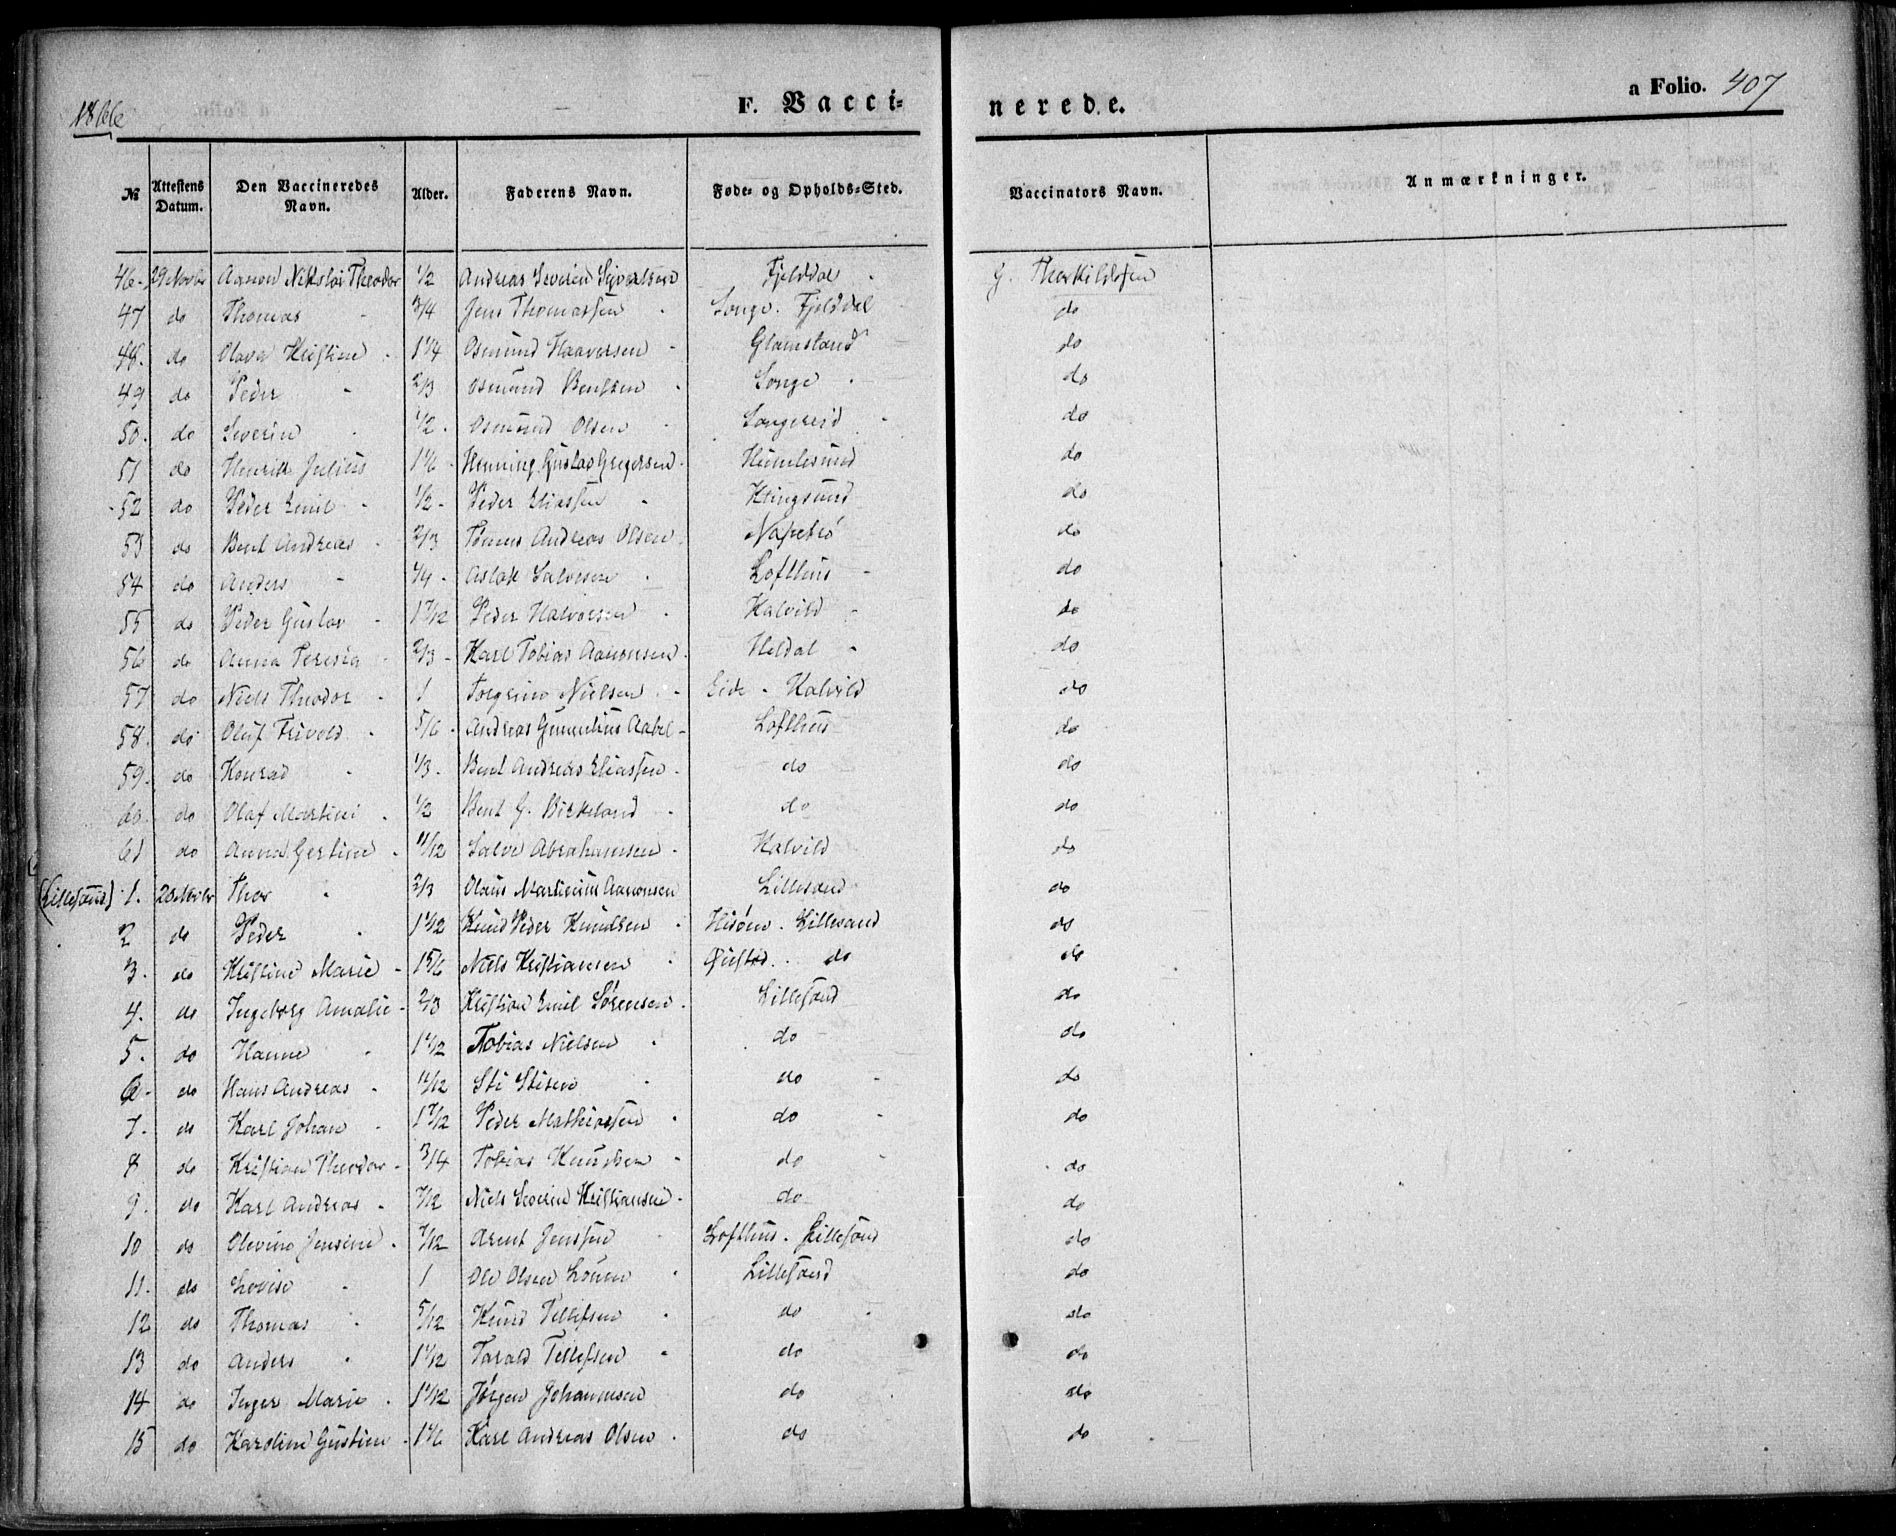 1866
F. Vacci=
nerede.
a Folio. 407
№ Attestens Datum. Den Vaccineredes Navn. Alder. Faderens Navn. Føde- og Opholds-Sted. Vaccinators Navn. Anmærkninger.
46. 29 Novbr Aanon Nikolai Theodor 1/2 Andreas Severin Syvertsen Fjelddal G. Therkildsen
47 do Thomas 3/4 Jens Thomassen Songe. Fjelddal do
48. do Olava Kristine 1 1/4 Osmund Haaversen Glamsland do
49 do Peder 2/3 Osmund Bentsen Songe do
50. do Severin 1/2 Osmund Olsen do
51 do Henrik Julius 1 1/6 Henning Gustav Gregersen Humlesund do
52 do Peder Emil 1/2 Peder Eliassen do
53 do Bent Andreas 2/3 Andreas Olsen do
54 do Anders 1/4 Aslak Salvesen Lofthus do
55 do Peder Gustav 1 7/12 Peder Halvorsen Kalvild do
56 do Anna Teresia 2/3 Karl Tobias Aanonsen Heldal do
57 do Niels Theodor 1 Torgrim Nielsen Eide. Kalvild do
58. do Oluf Trivold 5/6 Andreas Aabel Lofthus do
59. do Konrad 1/3 Bent Andreas Eliassen do do
60 do Olaf Martini 1/2 Bent G. Birkeland do do
61 do Anna Gestine 11/12 Salve Abrahamsen Kalvild do
(Lillesand) 1. 20 Novbr Thor 2/3 Olaus Martinius Aanonsen Lillesand do
2 do Peder 1 1/12 Knud Peder Knudsen Hisøen. Lillesand do
3. do Kristine Marie 1 5/6 Niels Kristiansen Øiestad. do do
4. do Ingeborg Amalie 2/3 Kristian Emil Sørensen Lillesand do
5. do Hanne 1 1/12 Tobias Nielsen do do
6 do Hans Andreas 11/12 Sti Stisen do do
7. do Karl Johan 1 7/12 Peder Mathiassen do do
8 do Kristian Theodor 3/4 Tobias Knudsen do do
9. do Karl Andreas 7/12 Niels Severin Kristiansen do do
10 do Olevine Jensine 7/12 Arent Jenssen Lofthus. Lillesand do
11. do Lovise 1 Ole Olsen Lillesand do
12 do Thomas 5/12 Knud Tellefsen do do
13 do Anders 1 1/12 Tarald Tellefsen do do
14 do Inger Marie 1 1/12 Jørgen Johannesen do do
15 do Karoline Gustine 1 1/6 Karl Andreas Olsen do do